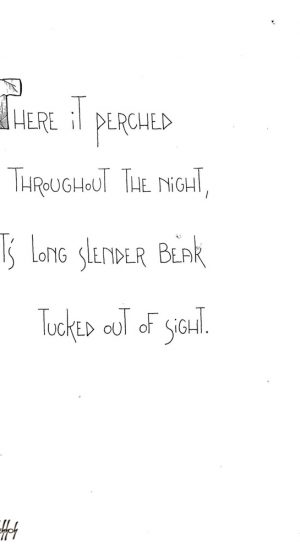 THERE iT PERCHED
THROUGHOUT THE NiGHT,
TS LONG SLENDER BEAK
TUCKED OUT OF SiGHT.